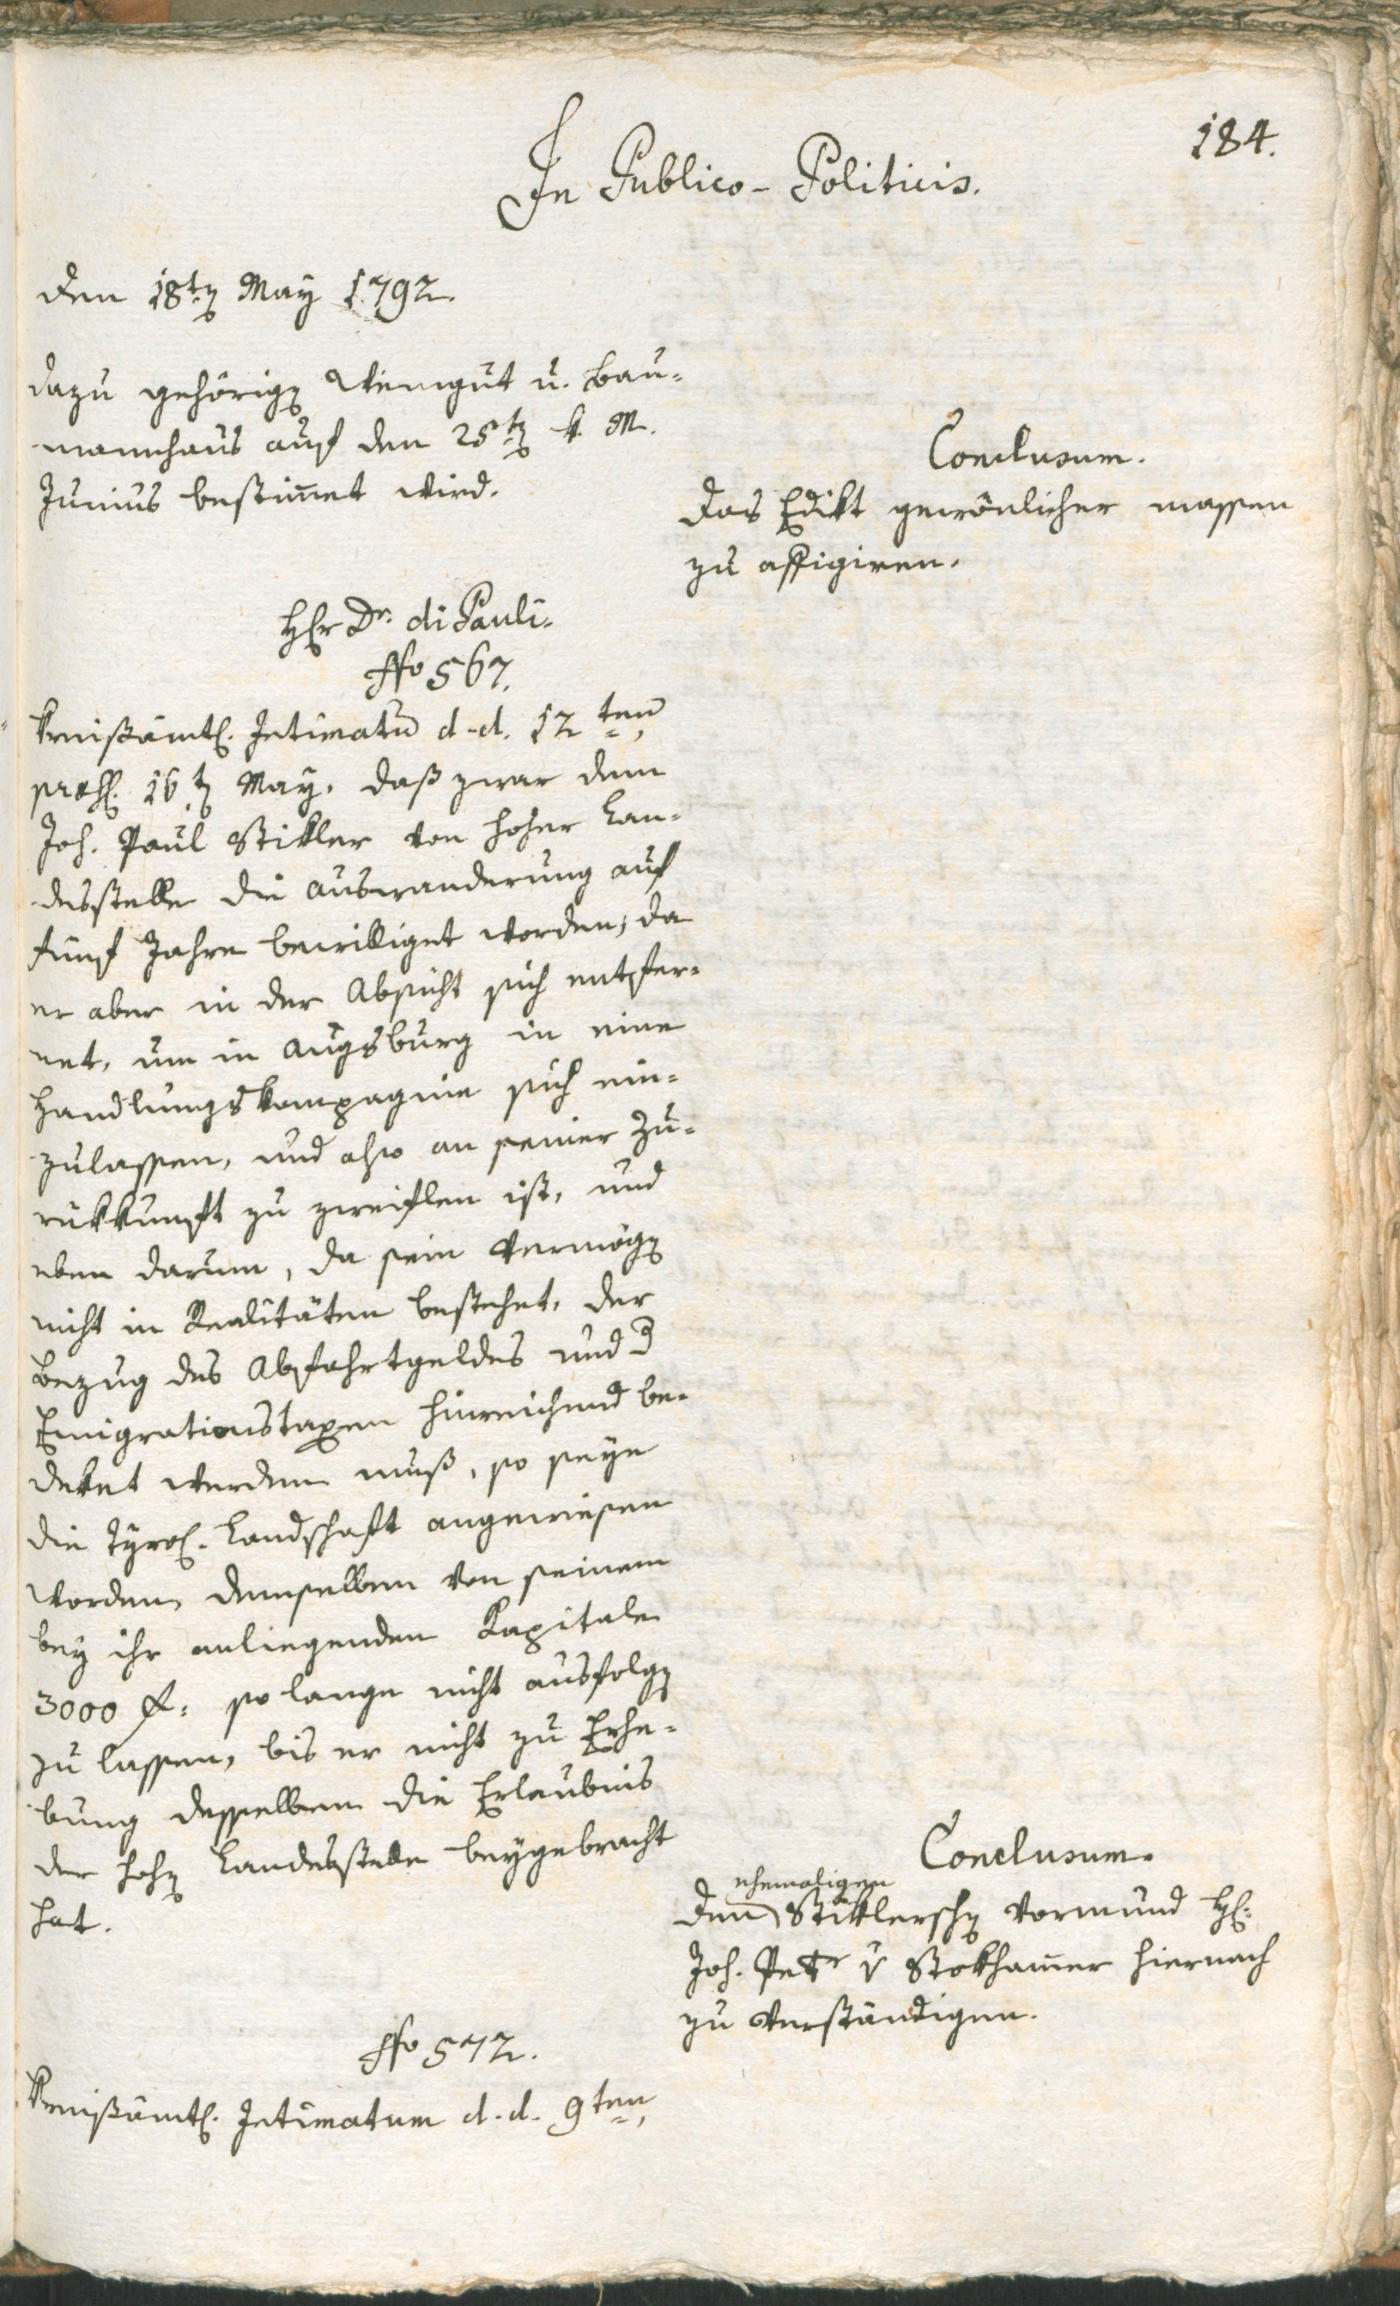 184.
In Publico-Politicis.
den 18ten May 1792.
dazu gehörigen Weingut u. Bau-
mannhaus auf den 25ten k. M.
Junius bestimmet wird.
Conclusum.
Das Edikt gewönlicher massen
zu affigiren.
Hr Dr. di Pauli.
No 567.
Kreißämtl. Intimatum d. d. 12ten,
praes. 16ten May. daß zwar dem
Joh. Paul Stikler von hoher Lan-
desstelle die Auswanderung auf
fünf Jahre bewilliget worden, da
er aber in der Absicht sich entfer-
net, um in Augsburg in eine
Handlungskompagnie sich ein-
zulassen, und also an seiner Zu-
rükkunft zu zweiflen ist, und
eben darum, da sein Vermögen
nicht in Realitäten bestehet, der
Bezug des Abfahrtgeldes und d
Emigrationstaxen hinreichend be-
deket werden muß, so seye
die Tyrol. Landschaft angewiesen
worden, demselben von seinem
bey ihr anliegenden Kapitale
3000 f. so lange nicht ausfolgen
zu lassen, bis er nicht zu Erhe-
bung desselben die Erlaubnis
der hohen Landesstelle beygebracht
hat.
Conclusum.
ehemaligen
Den Stiklerschen Vormund H:
Joh. Petr v Stokhamer hiernach
zu verständigen.
No 572.
Kreißämtl. Intimatum d. d. 9ten,